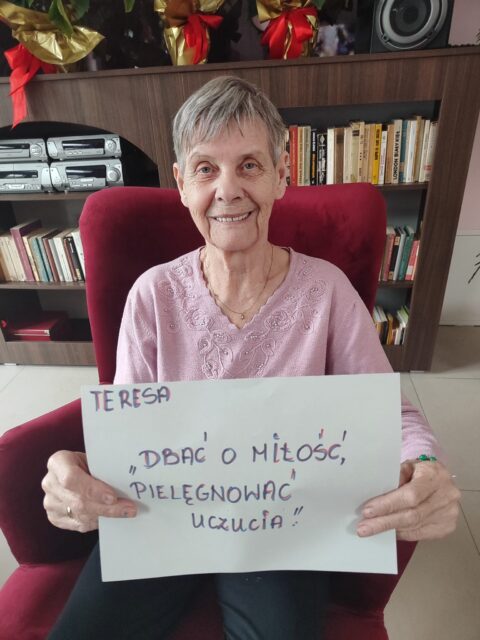 TERESA
„DBAĆ O MIŁOŚĆ,
PIELĘGNOWAĆ
UCZUCIA.”